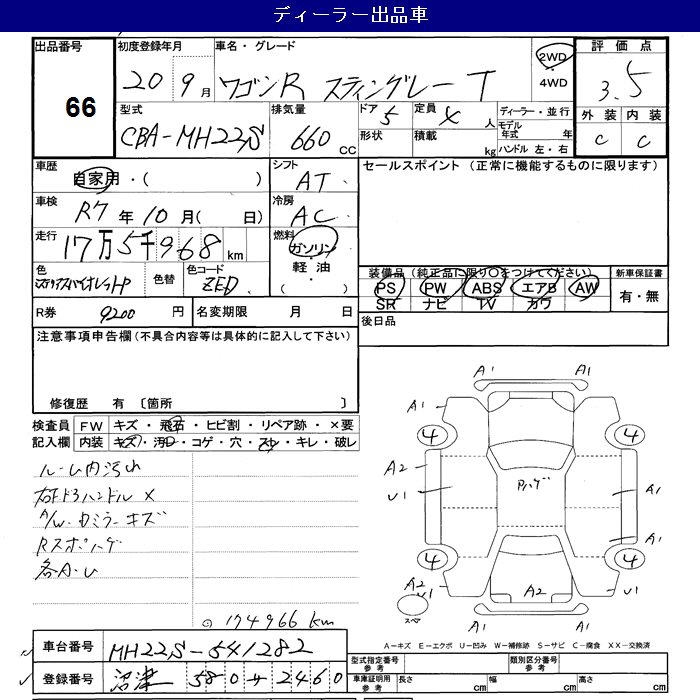 ディーラー出品車
出品番号 初度登録年月 車名・グレード 2WD 4WD 評価点
66 20 9月 ワゴンR スティングレー T 3.5
型式 排気量 ドア 定員 ディーラー・並行 外装 内装
CBA-MH22S 660 CC 5 4人 モデル年式 年 C C
形状 積載 kg ハンドル 左・右
車歴 自家用・( ) シフト AT セールスポイント (正常に機能するものに限ります)
車検 R7年10月( 日) 冷房 AC
走行 17万5千968km 燃料 ガソリン・軽油・( )
色 P 色替 色コード ZED 装備品 (純正品に限り○をつけてください) 新車保証書
PS PW ABS エアB AW 有・無
SR ナビ TV カワ
R券 9200円 名変期限 月 日 後日品
注意事項申告欄(不具合内容等は具体的に記入して下さい)
修復歴 有 〔箇所 〕
検査員 FW キズ・飛石・ヒビ割・リペア跡・×要
記入欄 内装 キズ・汚レ・コゲ・穴・スレ・キレ・破レ
ルーム内汚れ
右F ドアハンドル ×
A/W・ドミラーキズ
Rスポハゲ
各A・U
◎ 174966 km
A1 A1
A1 A1
4 4
A2
U1 Pハゲ A1
A1
4 4
A2 U1 A2 U1
スペア
A1
A-キズ E-エクボ U-凹み W-補修跡 S-サビ C-腐食 XX-交換済
車台番号 MH22S-541282 型式指定番号 参考 類別区分番号 参考
登録番号 沼津 580 サ 2460 車庫証明用 参考 長さ cm 幅 cm 高さ cm